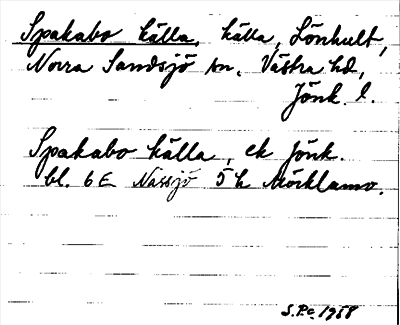 Spakabo källa, källa, Lönhult,
Norra Sandsjö sn, Västra hd,
Jönk. l.
Spakabo källa, ek Jönk.
bl. 6 E Nässjö 5 h Mörklamo.
S.P.o. 1958